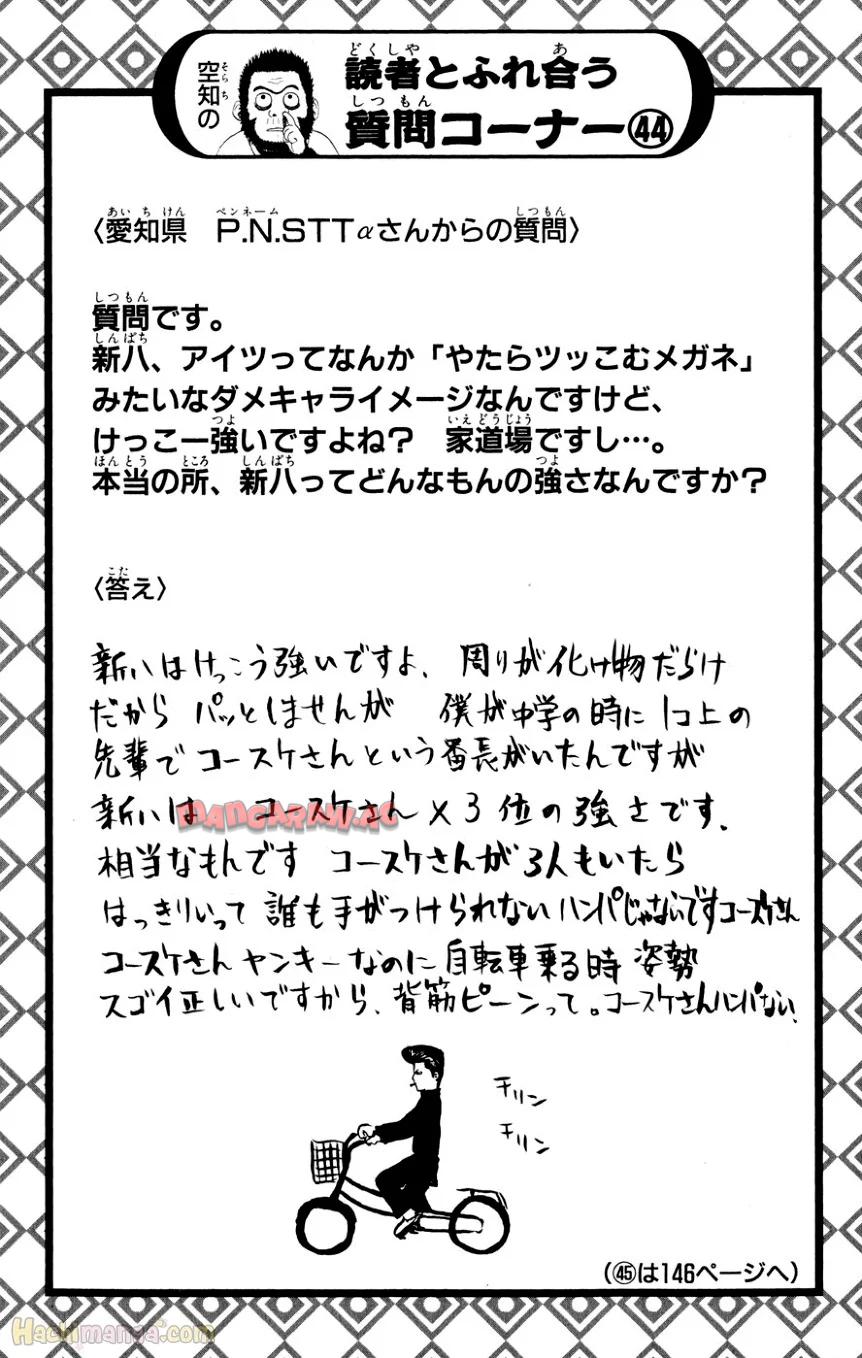 空知の
読者とふれ合う
質問コーナー㊹
〈愛知県 P.N.STTαさんからの質問〉
質問です。
新八、アイツってなんか「やたらツッこむメガネ」
みたいなダメキャライメージなんですけど、
けっこー強いですよね? 家道場ですし…。
本当の所、新八ってどんなもんの強さなんですか?
〈答え〉
新八はけっこう強いですよ、周りが化け物だらけ
だから パッとしませんが 僕が中学の時に 1コ上の
先輩で コースケさんという番長がいたんですが
新八は コースケさん×3 位の強さです.
相当なもんです コースケさんが3人もいたら
はっきりいって 誰も手がつけられない ハンパじゃないですコースケさん
コースケさん ヤンキーなのに 自転車乗る時 姿勢
スゴイ正しいですから、背筋ピーンって。コースケさんハンパない.
チリン
チリン
(㊺は146ページへ)
MANGARAW.AC
Hachimanga.com